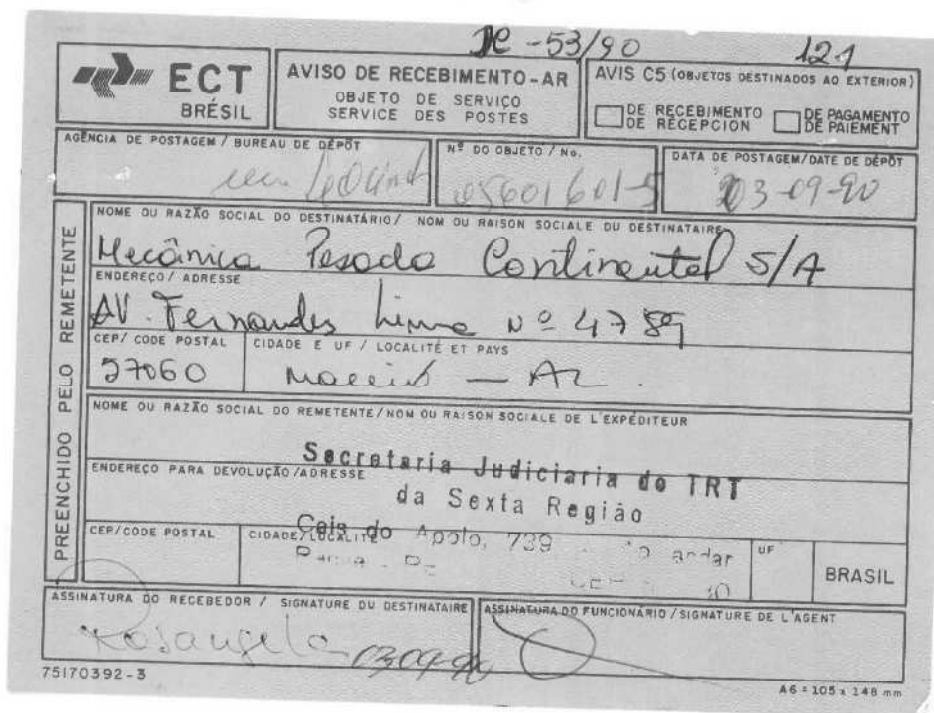 -53/90 121
ECT
BRÉSIL
AVISO DE RECEBIMENTO-AR
OBJETO DE SERVIÇO
SERVICE DES POSTES
AVIS C5 (OBJETOS DESTINADOS AO EXTERIOR)
DE RECEBIMENTO
DE RÉCEPCION
DE PAGAMENTO
DE PAIEMENT
AGÊNCIA DE POSTAGEM / BUREAU DE DÉPÔT
Nº DO OBJETO / No.
05601601-5
DATA DE POSTAGEM/DATE DE DÉPÔT
03-09-90
PREENCHIDO PELO REMETENTE
NOME OU RAZÃO SOCIAL DO DESTINATÁRIO / NOM OU RAISON SOCIALE DU DESTINATAIRE
Mecânica Pesada Continental S/A
ENDEREÇO / ADRESSE
AV. Fernandes Lima Nº 4789
CEP/ CODE POSTAL
57060
CIDADE E UF / LOCALITÉ ET PAYS
Maceió — AL
NOME OU RAZÃO SOCIAL DO REMETENTE/NOM OU RAISON SOCIALE DE L'EXPÉDITEUR
Secretaria Judiciaria do TRT
ENDEREÇO PARA DEVOLUÇÃO /ADRESSE
da Sexta Região
Cais do Apolo, 739 andar
CEP/CODE POSTAL
CIDADE/LOCALITÉ
UF
BRASIL
ASSINATURA DO RECEBEDOR / SIGNATURE DU DESTINATAIRE
Rosangela 03-09-90
ASSINATURA DO FUNCIONÁRIO / SIGNATURE DE L'AGENT
75170392-3
A6 = 105 x 148 mm